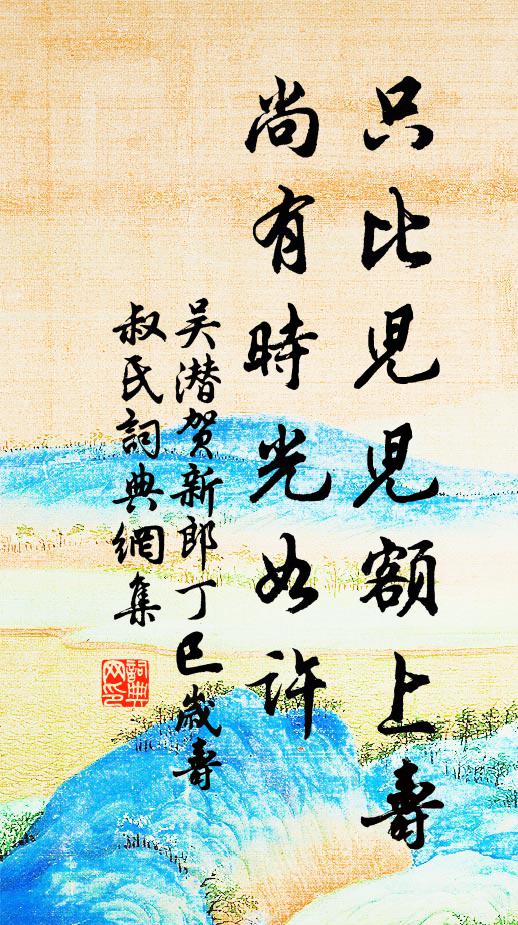 只比兒兒額上壽
尚有時光如許
吴潜贺新郎丁巳歲壽
叔氏詞典網集
詞典
网印